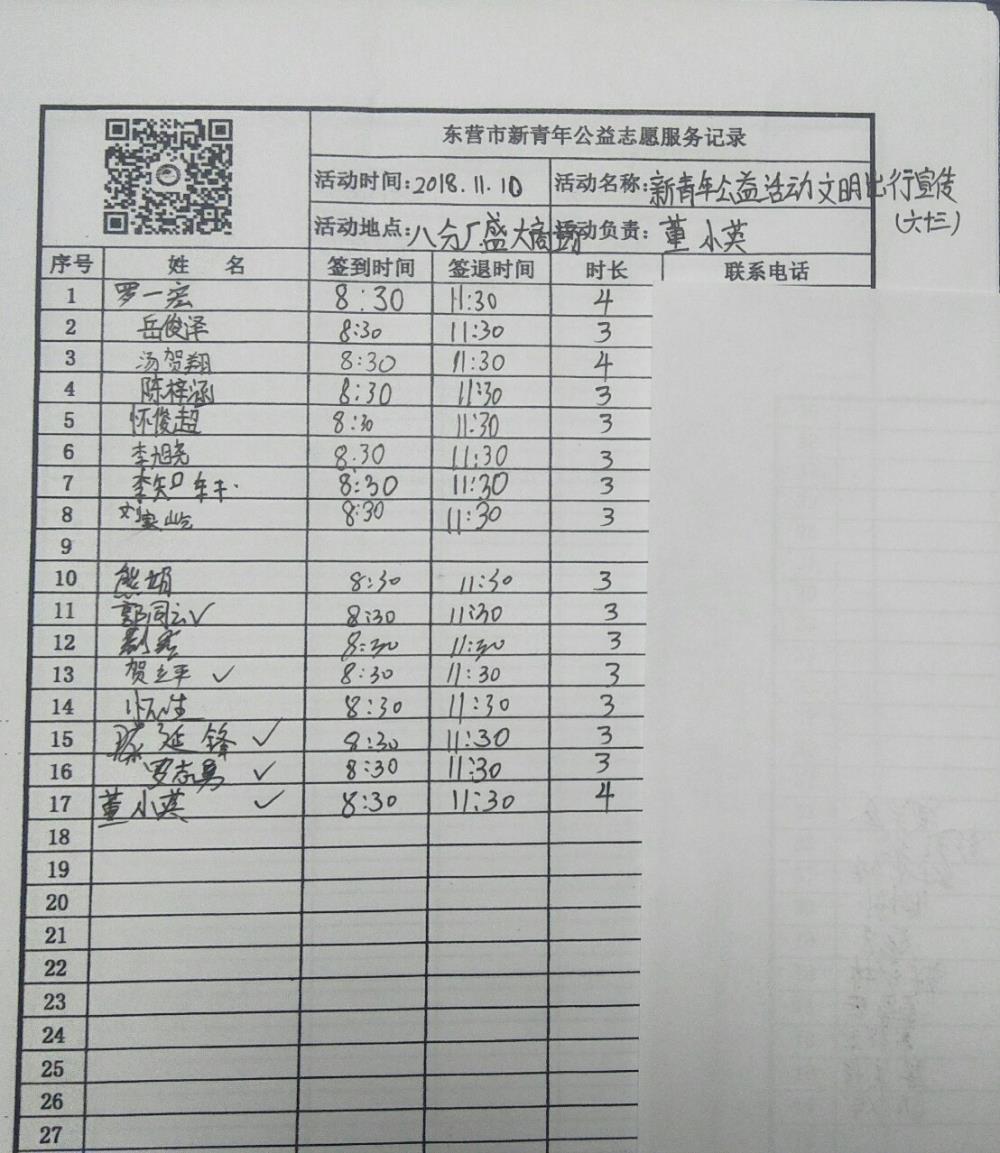 东营市新青年公益志愿服务记录
活动时间:2018.11.10 活动名称:新青年公益活动文明出行宣传
(六十三)
活动地点:八分厂盛大商场 活动负责:董小英
序号 姓 名 签到时间 签退时间 时长 联系电话
1 罗一宏 8:30 11:30 4
2 岳俊泽 8:30 11:30 3
3 汤贺翔 8:30 11:30 4
4 陈梓涵 8:30 11:30 3
5 怀俊超 8:30 11:30 3
6 李旭尧 8.30 11:30 3
7 8:30 11:30 3
8 8:30 11:30 3
9
10 熊娟 8:30 11:30 3
11 郭同云✓ 8:30 11:30 3
12 8:30 11:30 3
13 贺立平 ✓ 8:30 11:30 3
14 8:30 11:30 3
15 延锋 ✓ 8:30 11:30 3
16 罗志勇 ✓ 8:30 11:30 3
17 董小英 ✓ 8:30 11:30 4
18
19
20
21
22
23
24
25
26
27